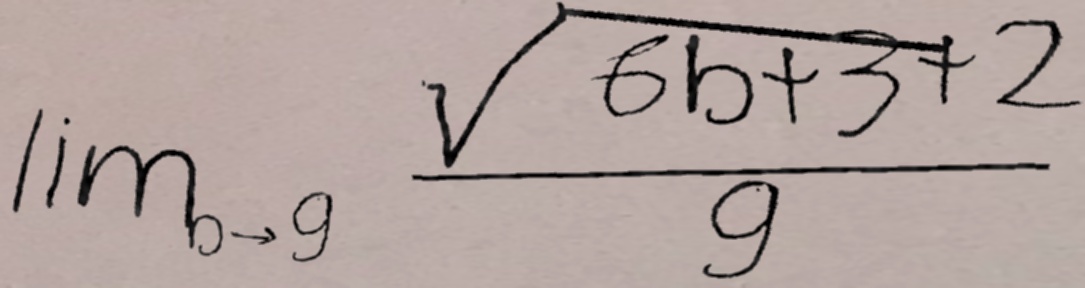 lim b→9 √(6b+3)+2 / 9